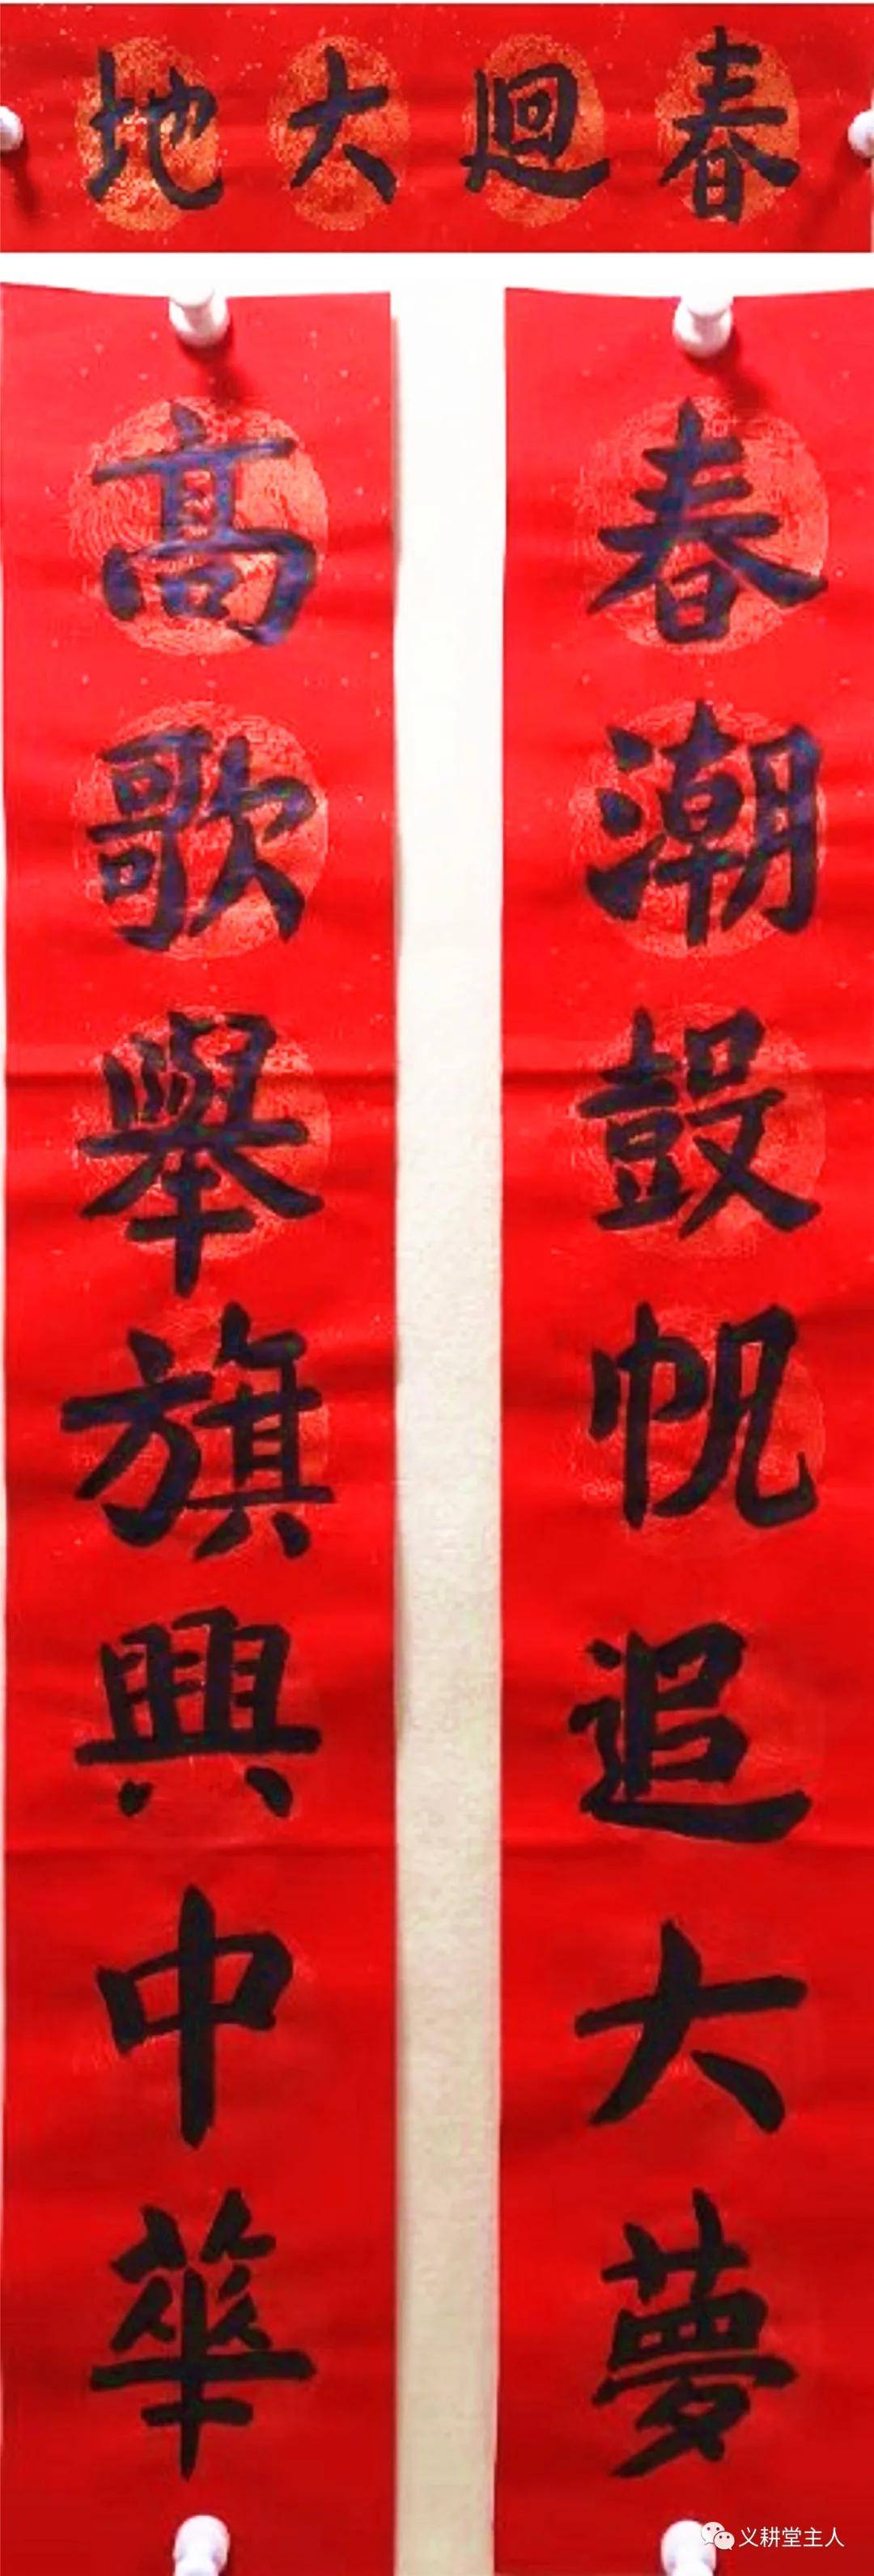 春迴大地
春潮鼓帆追大夢
高歌舉旗興中華
义耕堂主人